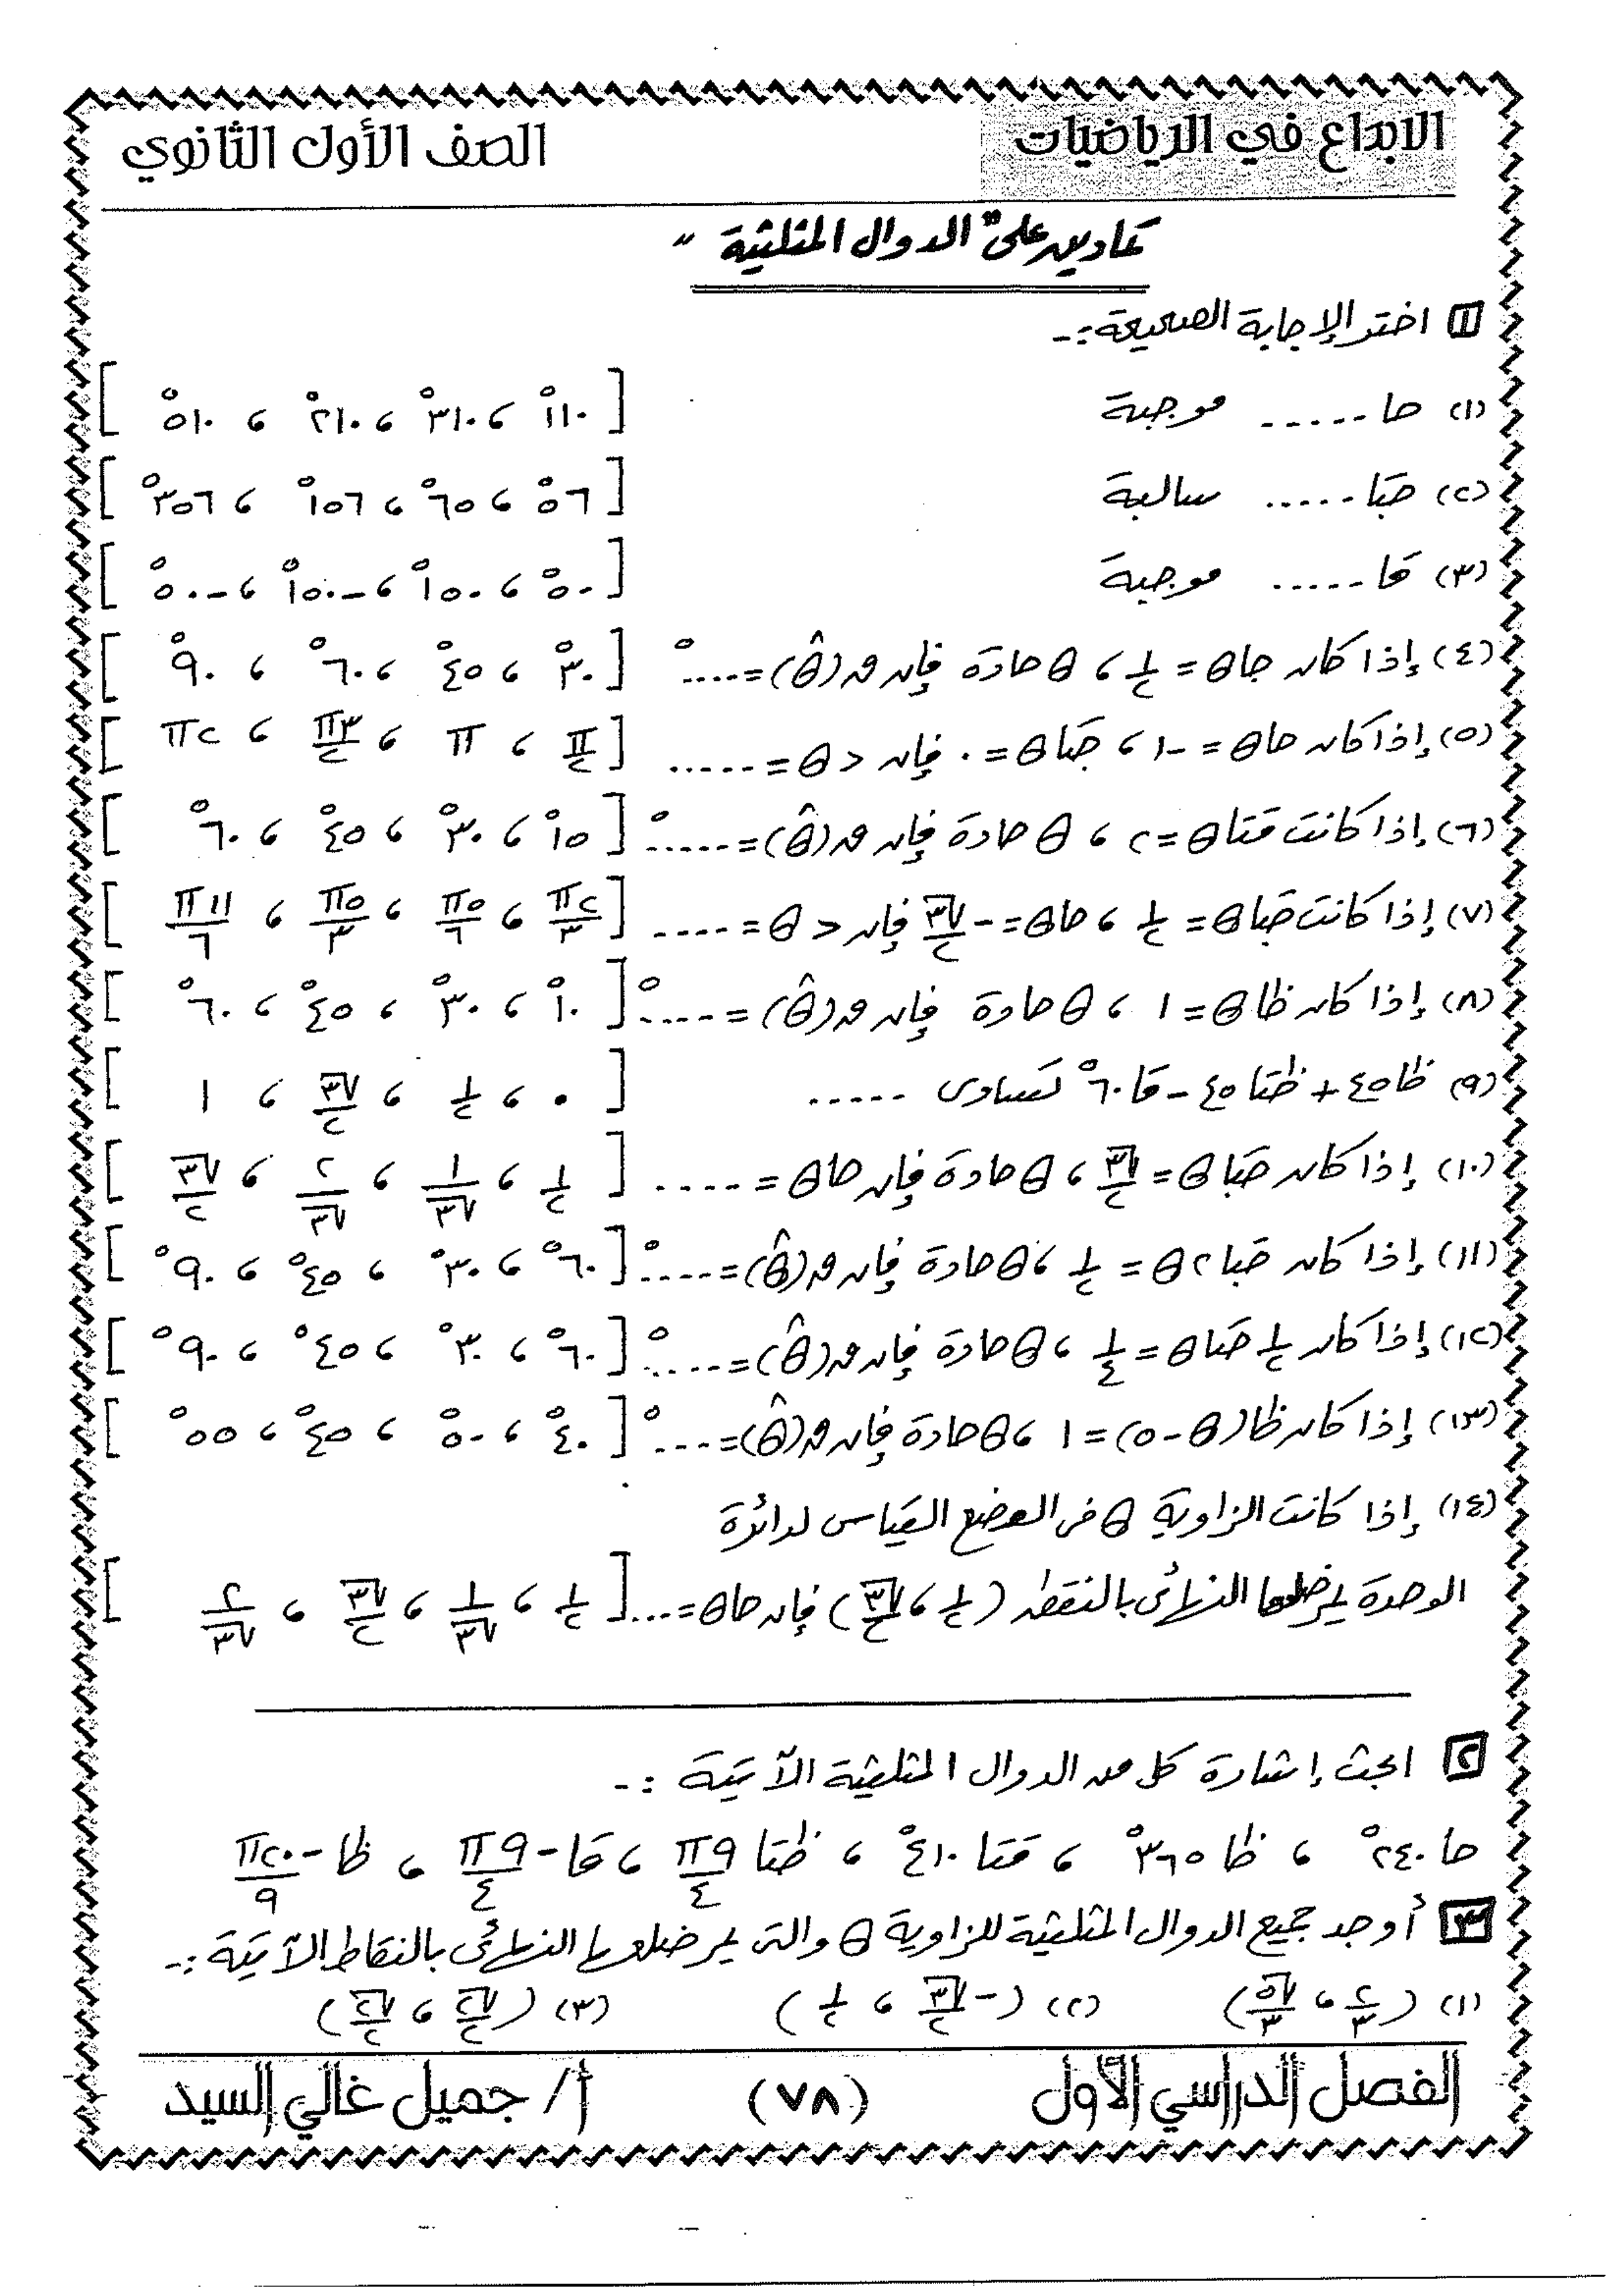 الابداع في الرياضيات
الصف الأول الثانوي
تمارين على " الدوال المثلثية "
١ اختر الإجابة الصحيحة :-
(١) حا ..... موجبة [ ١١٠° ، ٣١٠° ، ٢١٠° ، ٥١٠° ]
(٢) حتا ..... سالبة [ ٥٦° ، ٦٥° ، ١٥٦° ، ٣٥٦° ]
(٣) قا ..... موجبة [ ٥٠° ، ١٥٠° ، -١٥٠° ، -٥٠° ]
(٤) إذا كان جا θ = ١/٢ ، θ حادة فإن ق(θ̂) = ....° [ ٣٠° ، ٤٥° ، ٦٠° ، ٩٠° ]
(٥) إذا كان حا θ = -١ ، جتا θ = ٠ فإن < θ = ..... [ π/٢ ، π ، ٣π/٢ ، ٢π ]
(٦) إذا كانت قتا θ = ٢ ، θ حادة فإن ق(θ̂) = .....° [ ١٥° ، ٣٠° ، ٤٥° ، ٦٠° ]
(٧) إذا كانت حتا θ = ١/٢ ، حا θ = -√٣/٢ فإن < θ = .... [ ٢π/٣ ، ٥π/٦ ، ٥π/٣ ، ١١π/٦ ]
(٨) إذا كان ظا θ = ١ ، θ حادة فإن ق(θ̂) = ....° [ ١٠° ، ٣٠° ، ٤٥° ، ٦٠° ]
(٩) ظا ٤٥ + ظتا ٤٥ - قا ٦٠° تساوى ..... [ ٠ ، ١/٢ ، √٣/٢ ، ١ ]
(١٠) إذا كان حتا θ = √٣/٢ ، θ حادة فإن حا θ = .... [ ١/٢ ، ١/√٣ ، ٢/√٣ ، √٣/٢ ]
(١١) إذا كان حتا ٢θ = ١/٢ ، θ حادة فإن ق(θ̂) = ....° [ ٦٠° ، ٣٠° ، ٤٥° ، ٩٠° ]
(١٢) إذا كان ١/٢ حتا θ = ١/٤ ، θ حادة فإن ق(θ̂) = ....° [ ٦٠° ، ٣٠° ، ٤٥° ، ٩٠° ]
(١٣) إذا كان ظا (θ - ٥) = ١ ، θ حادة فإن ق(θ̂) = ...° [ ٤٠° ، ٥٠° ، ٤٥° ، ٥٥° ]
(١٤) إذا كانت الزاوية θ فى الوضع القياسى لدائرة
الوحدة يمر ضلعها النهائى بالنقطه (١/٢ ، √٣/٢) فإن حا θ = ... [ ١/٢ ، ١/√٣ ، √٣/٢ ، ٢/√٣ ]
٢ ابحث إشارة كل من الدوال المثلثية الآتية :-
حا ٢٤٠° ، ظا ٣٦٥° ، قتا ٤١٠° ، ظتا ٩π/٤ ، قا -٩π/٤ ، ظا -٢٠π/٩
٣ أوجد جميع الدوال المثلثية للزاوية θ والتى يمر ضلعها النهائى بالنقاط الآتية :-
(١) (٢/٣ ، √٥/٣) (٢) (-√٣/٢ ، ١/٢) (٣) (√٢/٢ ، √٢/٢)
الفصل الدراسي الأول (٧٨) أ/ جميل غالي السيد